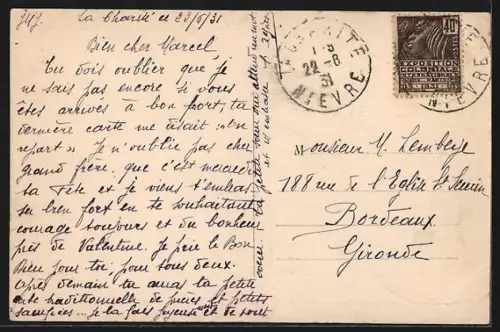 JMJ. La Charité ce 22/8/31
Bien cher Marcel,
Tu dois oublier que je
ne sais pas encore si vous
êtes arrivés à bon port, ta
dernière carte me disait "on
repart" Je n'oublie pas cher
grand frère, que c'est mercredi
ta Fête et je viens t'embras
ser bien fort en te souhaitant
courage toujours et du bonheur
près de Valentine. Je prie le Bon
Dieu pour toi, pour tous deux.
Après demain tu auras ta petite
traditionnelle de prières et petits
sacrifices... je la fais joyeuse et de tout
coeur. Ta petite soeur qui attend un mot
et t'embrasse
LA CHARITÉ
22-8
31
NIEVRE
40c
EXPOSITION
COLONIALE
POSTES
NIEVRE
Monsieur M. Lemberge
188 rue de l'Eglise St Seurin
Bordeaux
Gironde